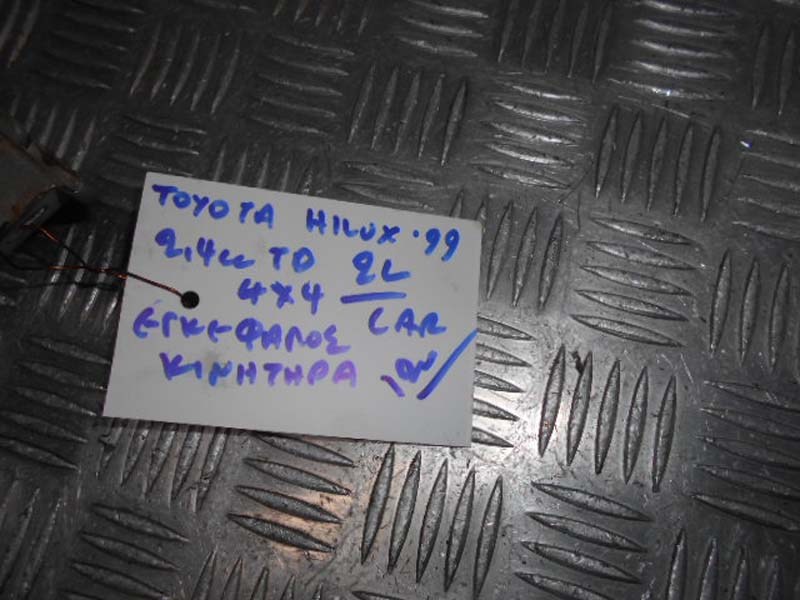 TOYOTA HILUX '99
2,4cc TD 2L
4X4 CAR
ΕΓΚΕΦΑΛΟΣ
ΚΙΝΗΤΗΡΑ